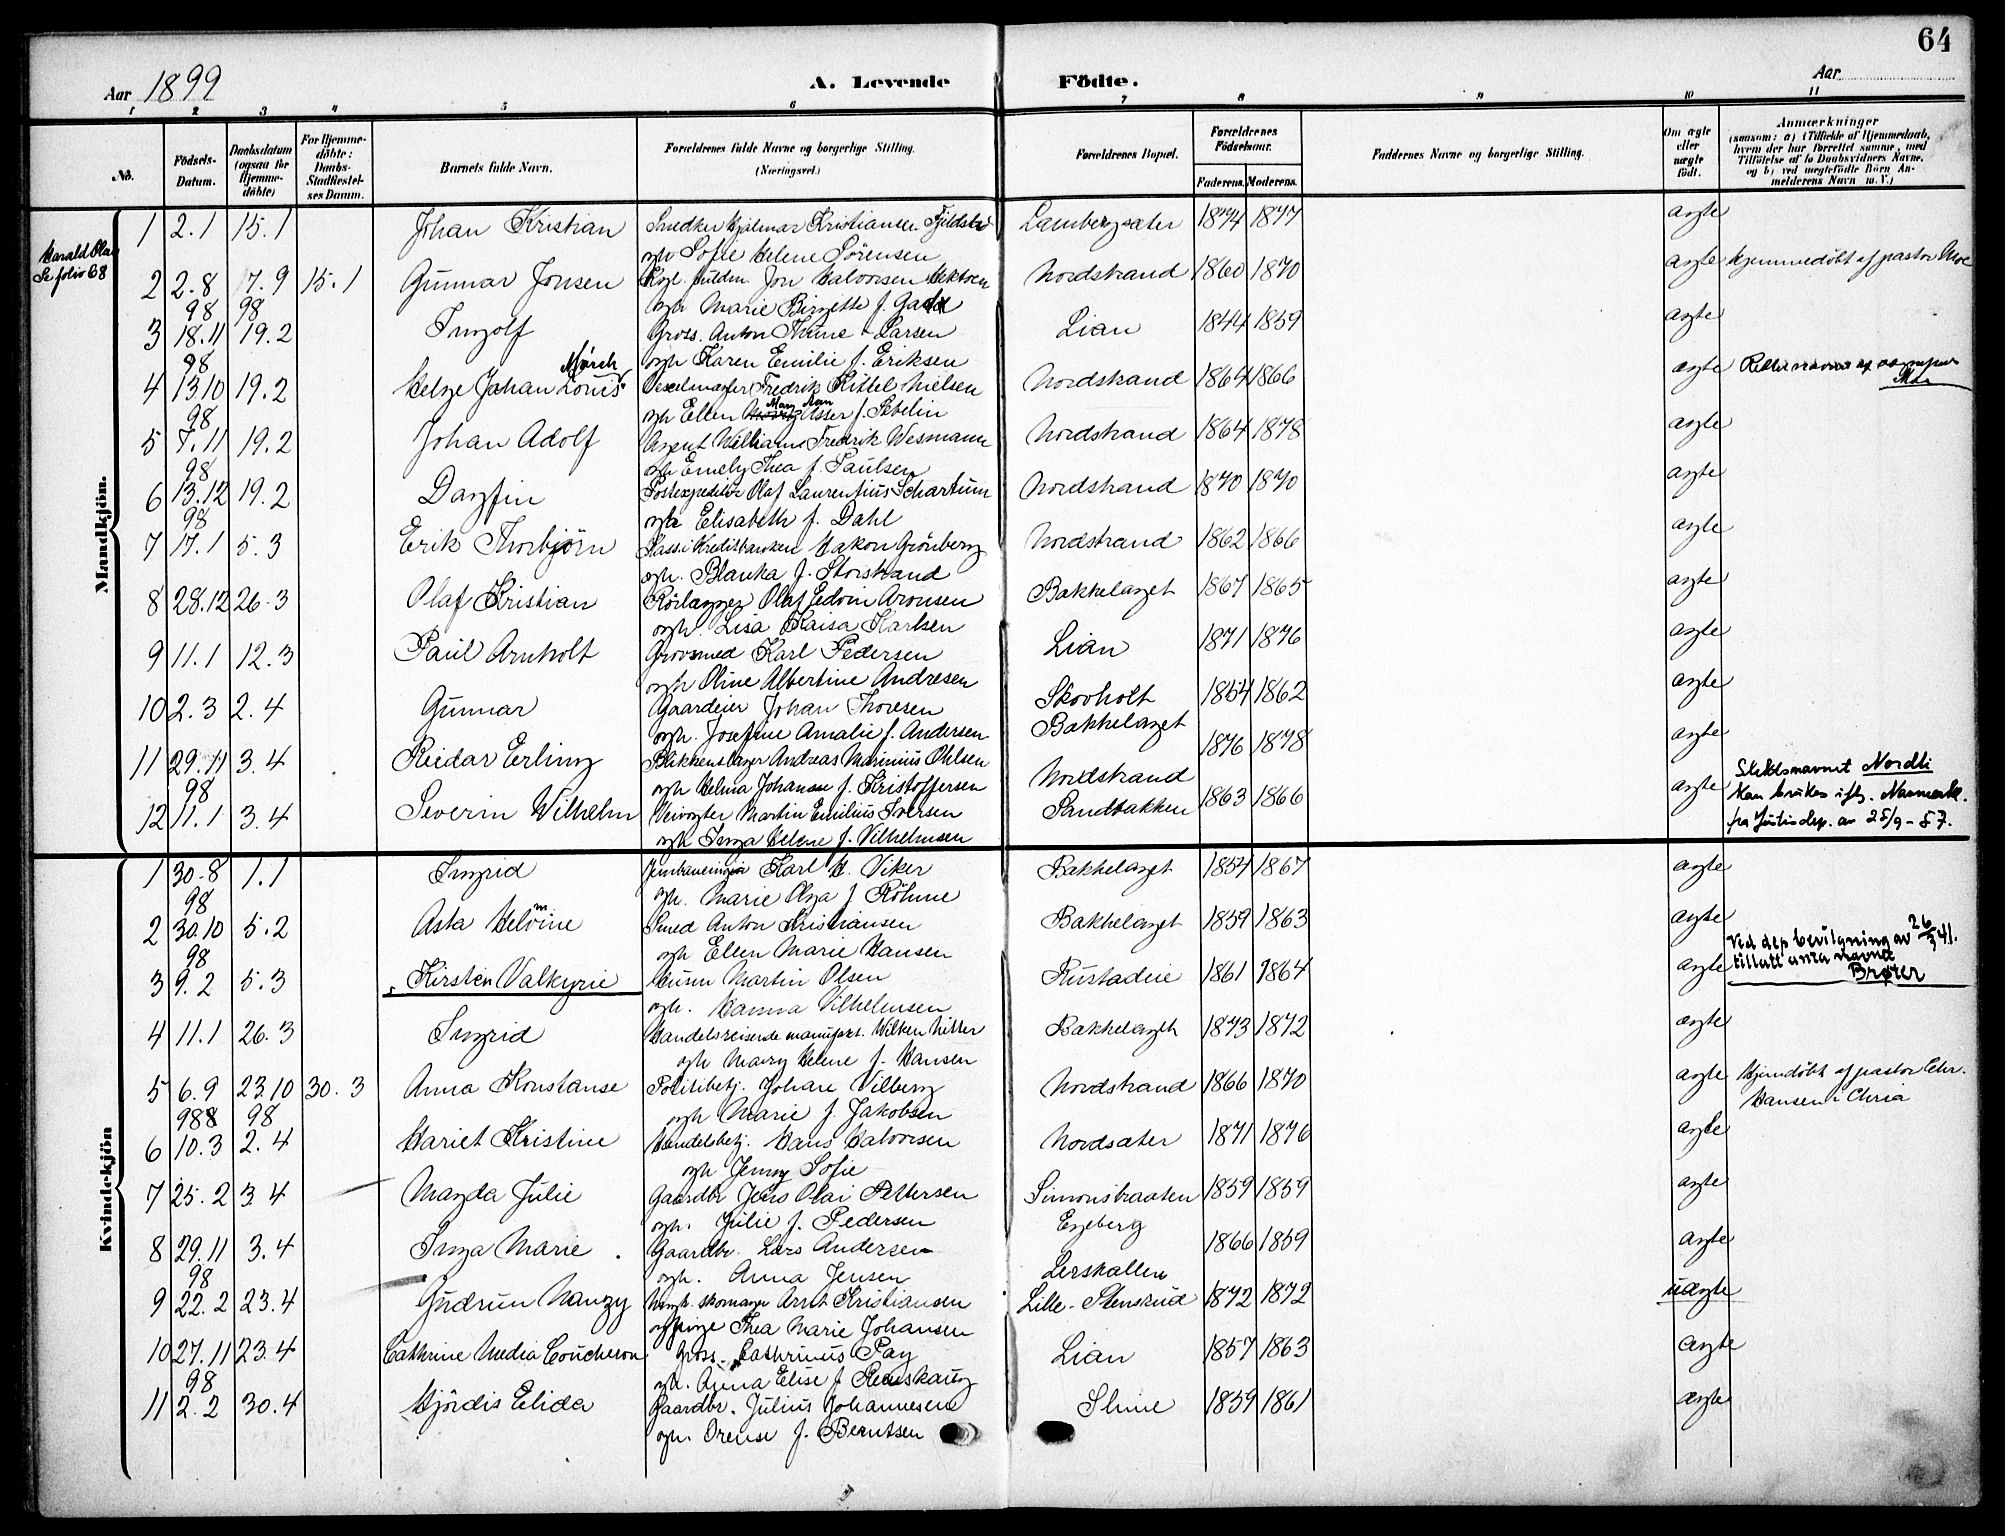 64
Aar 1899
A. Levende
Födte.
Aar
1 2 3 4 5 6 7 8 9 10 11
No.
Födsels-Datum.
Daabsdatum (ogsaa for Hjemme-döbte)
For Hjemme-döbte: Daabs-Stadfæstel-ses Datum.
Barnets fulde Navn.
Forældrenes fulde Navne og borgerlige Stilling. (Næringsvei.)
Forældrenes Bopæl.
Forældrenes Födselsaar.
Faderens. Moderens.
Faddernes Navne og borgerlige Stilling.
Om ægte eller uægte födt.
Anmærkninger
(saasom: a) i Tilfælde af Hjemmedaab, hvem der har forrettet samme, med Tilföielse af to Daabsvidners Navne, og b) ved uægtefödte Börn Anmelderens Navn m. V.)
Mandkjön.
Harald Olaf
Se folio 68
1 2.1 15.1 Johan Kristian Snedker Hjalmar Kristiansen Lambergsæter 1874 1877 ægte
og h. Sofie Helene Sörensen
2 2.8 7.9 15.1 Gunnar Jonsen Jon Halvorsen Nordstrand 1860 1870 ægte Hjemmedöbt af pastor Moe
98 98 og h. Marie Birgette f.
3 18.11 19.2 Ingolf Gross. Anton Thune Larsen Lian 1844 1859 ægte
98 og h. Karen Emilie f. Eriksen
Mörch
4 13.10 19.2 Helge Johan Louis Fredrik Kittel Nielsen Nordstrand 1864 1866 ægte
98 og h. Ellen f. Sibelin
5 7.11 19.2 Johan Adolf Agent William Fredrik Wesmann Nordstrand 1864 1878 ægte
98 og h. Emely Thea f. Paulsen
6 13.12 19.2 Dagfin Postexpeditör Olaf Laurentius Schartum Nordstrand 1870 1870 ægte
98 og h. Elisabeth f. Dahl
7 17.1 5.3 Erik Thorbjörn Kreditbanken Hakon Grönberg Nordstrand 1862 1866 ægte
og h. Blanka f. Storstrand
8 28.12 26.3 Olaf Kristian Rörlægger Olaf Edvin Aronsen Bækkelaget 1867 1865 ægte
og h. Lisa Kaisa Karlsen
9 11.1 12.3 Paul Arnholt Grovsmed Karl Pedersen Lian 1871 1876 ægte
og h. Oline Albertine Andresen
10 2.3 2.4 Gunnar Gaardeier Johan Thoresen Skovholt 1854 1862 ægte
og h. Josefine Amalie f. Andersen Bækkelaget
11 29.11 3.4 Reidar Erling Andreas Marinius Ohlsen Nordstrand 1876 1878 ægte
98 og h. Helma Johanne f. Kristoffersen
12 11.1 3.4 Severin Wilhelm Veivogter Martin Emilius Iversen Sandbakken 1863 1866 ægte Slektsnavnet Nordli
kan brukes iflg. Navneark.
fra Justisdep. av 25/9-57.
og h. Inga Helene f. Vilhelmsen
Kvindekjön
1 30.8 1.1 Ingrid Karl H. Viker Bækkelaget 1854 1867 ægte
98 og h. Marie Olga f. Röhme
2 30.10 5.2 Asta Helmine Smed Anton Kristiansen Bækkelaget 1859 1863 ægte
98 og h. Ellen Marie Hansen
3 9.2 5.3 Kirsten Valkyrie Martin Olsen Rustadeie 1861 1864 ægte Ved dep bevilgning av 26/3 41.
tillatt anta navnet
Brøter
og h. Hanna Vilhelmsen
4 11.1 26.3 Ingrid Handelsreisende Bækkelaget 1873 1872 ægte
og h. Mary Helene f. Hansen
5 6.9 23.10 30.3 Anna Konstanse Politibetj. Johan Vilberg Nordstrand 1866 1870 ægte Hjemdöbt af pastor Chr.
Hansen i Chria
98 98 og h. Marie f. Jakobsen
6 10.3 2.4 Hariet Kristine Handelsbetj. Hans Halvorsen Nordsæter 1871 1876 ægte
og h. Jenny Sofie
7 25.2 3.4 Magda Julie Gaardbr. Jens Olai Pettersen Simonstraaten 1859 1859 ægte
og h. Julie f. Pedersen Egeberg
8 29.11 3.4 Inga Marie Gaardbr. Lars Andersen 1866 1859 ægte
98 og h. Anna Jensen Lerskallen
9 22.2 23.4 Gudrun Nanzy Ungk. skomager Arnt Kristiansen Lille-Stensrud 1872 1872 uægte
og pige Thea Marie Johansen
10 27.11 23.4 Cathrine Media Coucheron Gross. Cathrinus Pay Lian 1857 1863 ægte
98 og h. Elise f.
11 2.2 30.4 Hjördis Elida Gaardbr. Julius Johannesen Slime 1859 1861 ægte
og h. Orense f. Berntsen